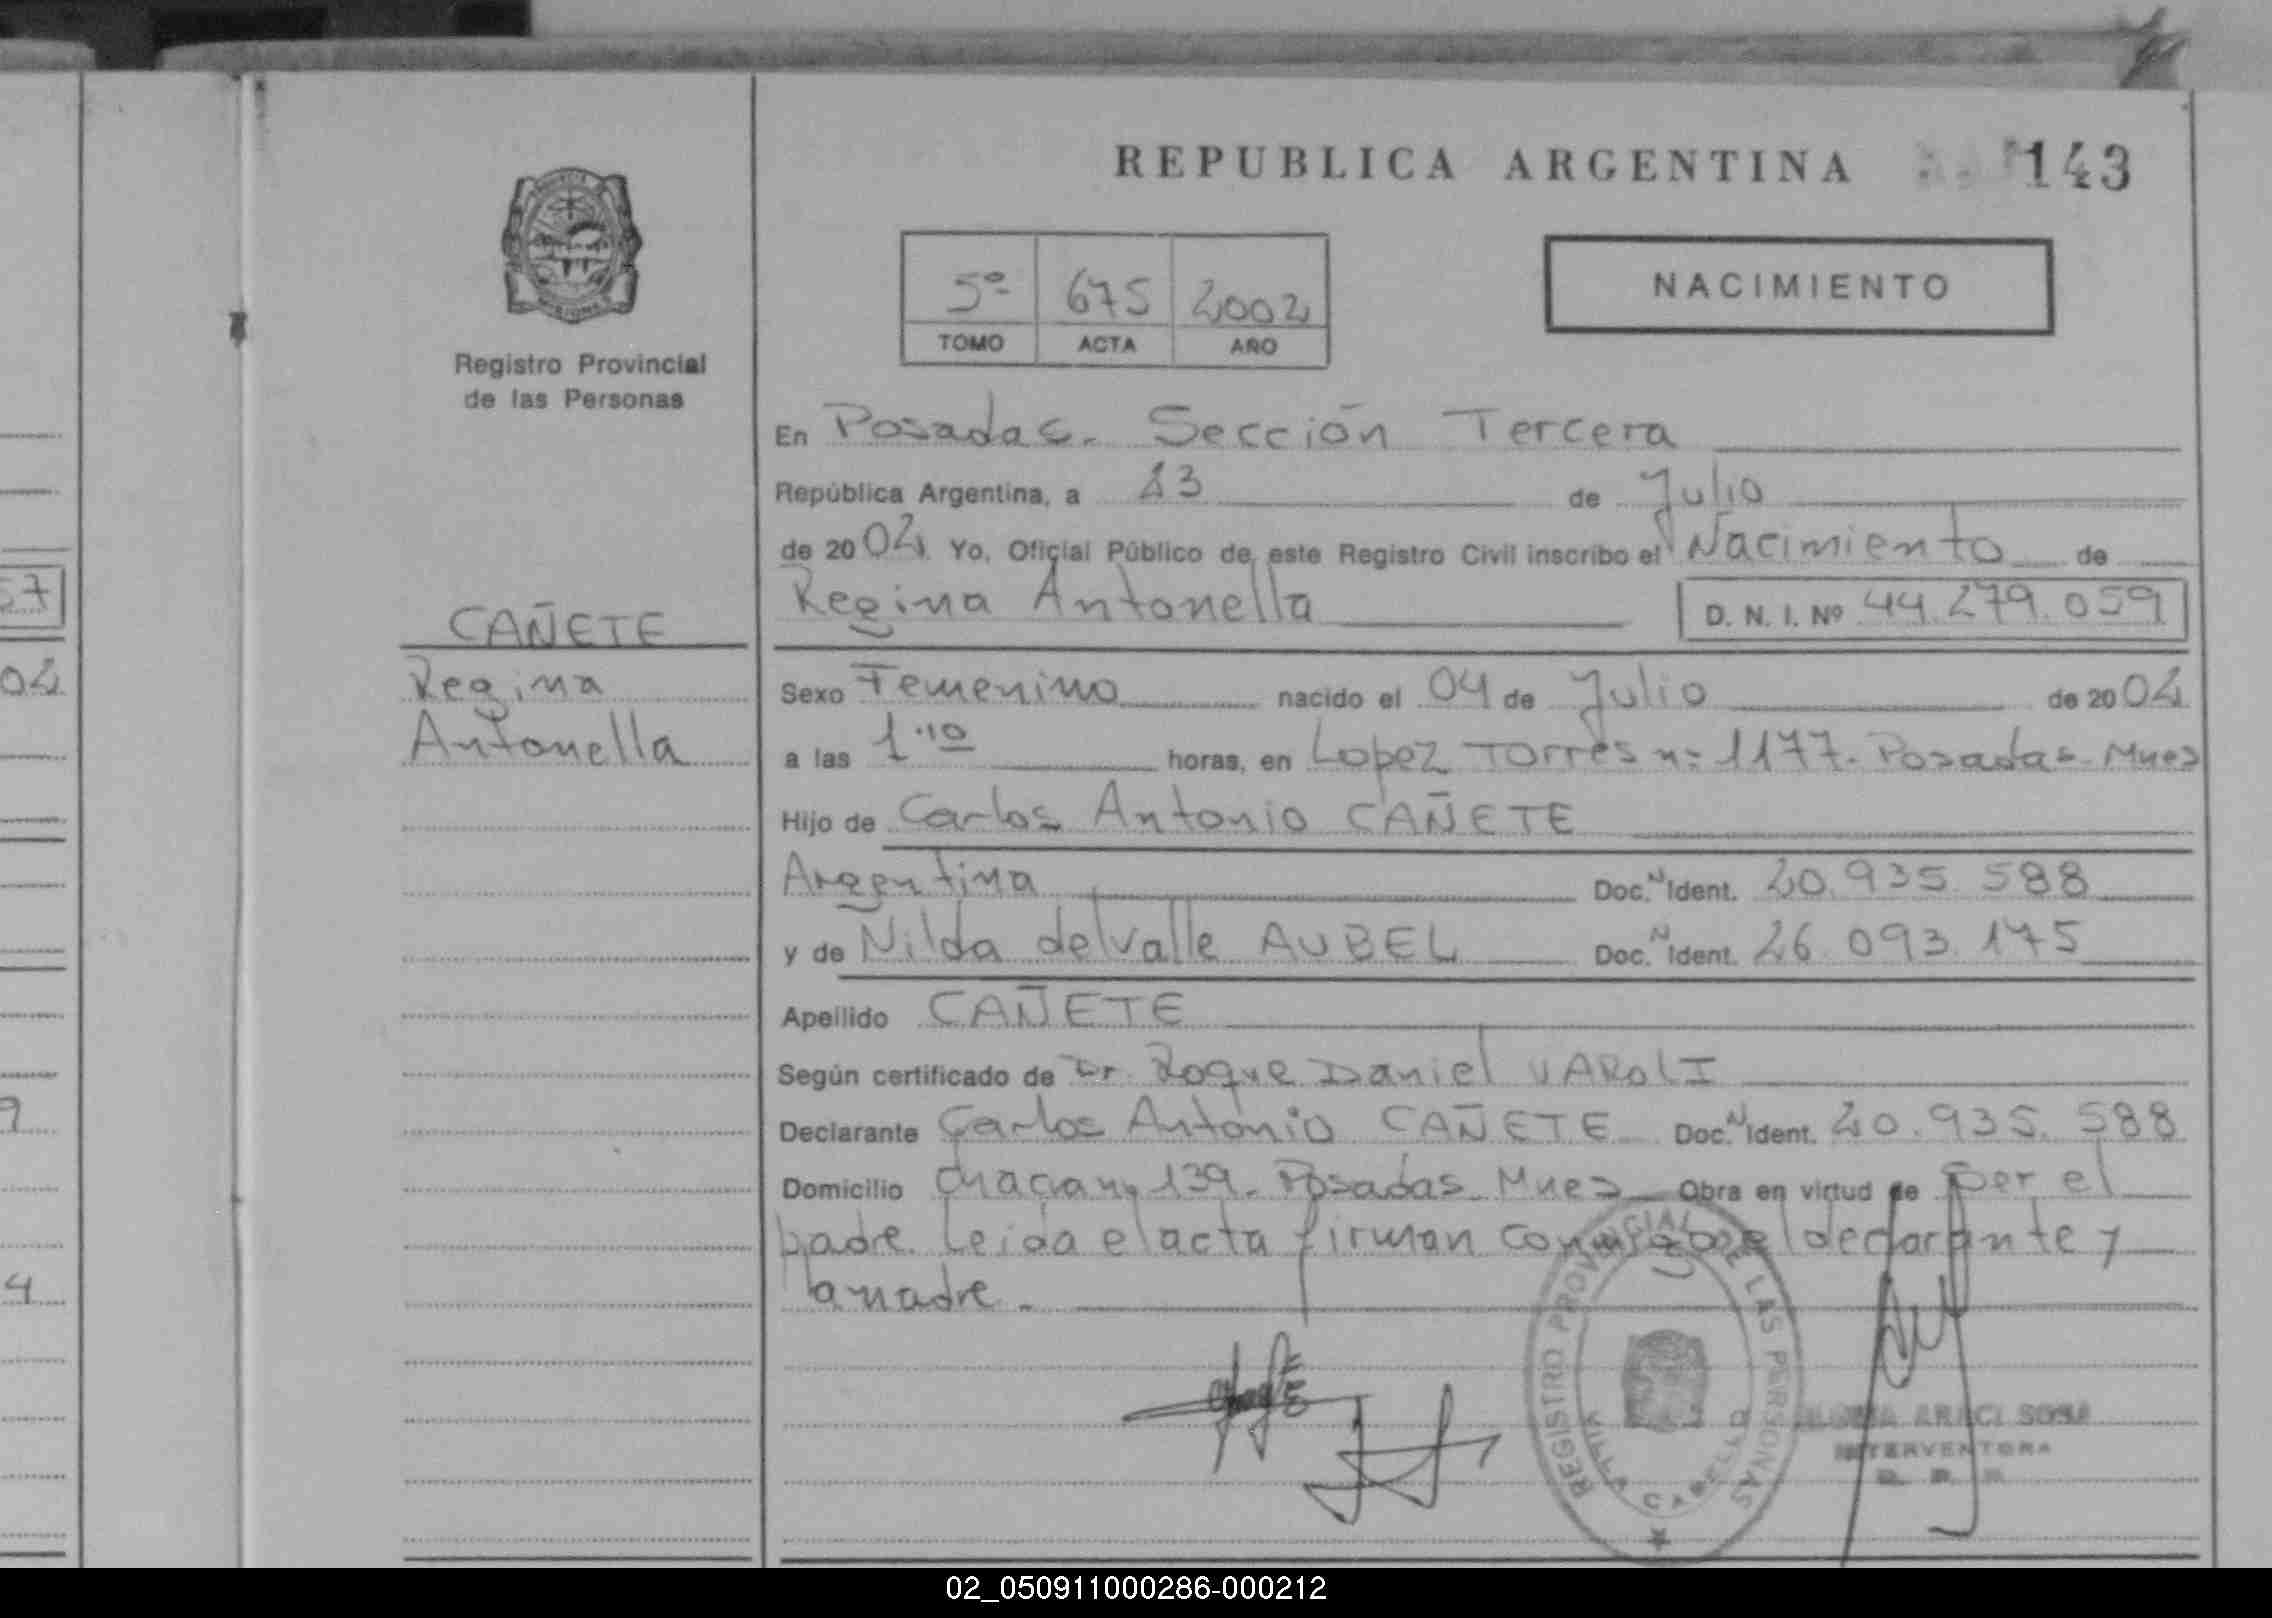 REPUBLICA ARGENTINA 143
5º 675 2002
TOMO ACTA AÑO
NACIMIENTO
Registro Provincial
de las Personas
En Posadas. Sección Tercera
República Argentina, a 23 de Julio
de 2002 Yo, Oficial Público de este Registro Civil inscribo el Nacimiento de
Regina Antonella
D. N. I. Nº 44.279.059
CAÑETE
Regina
Antonella
Sexo Femenino nacido el 04 de Julio de 2002
a las 1.10 horas, en Lopez Torres nº 1177. Posadas. Mnes
Hijo de Carlos Antonio CAÑETE
Argentina Doc. N Ident. 20.935.588
y de Nilda del Valle AUBEL Doc. N Ident. 26.093.175
Apellido CAÑETE
Según certificado de Dr. Roque Daniel VAROLI
Declarante Carlos Antonio CAÑETE Doc. N Ident. 20.935.588
Domicilio 139. Posadas. Mnes Obra en virtud de ser el
padre. Leida el acta firman el declarante y
la madre.
REGISTRO PROVINCIAL DE LAS PERSONAS
VILLA CABELLO
ARACI SOSA
INTERVENTORA
57
02
9
4
02_050911000286-000212